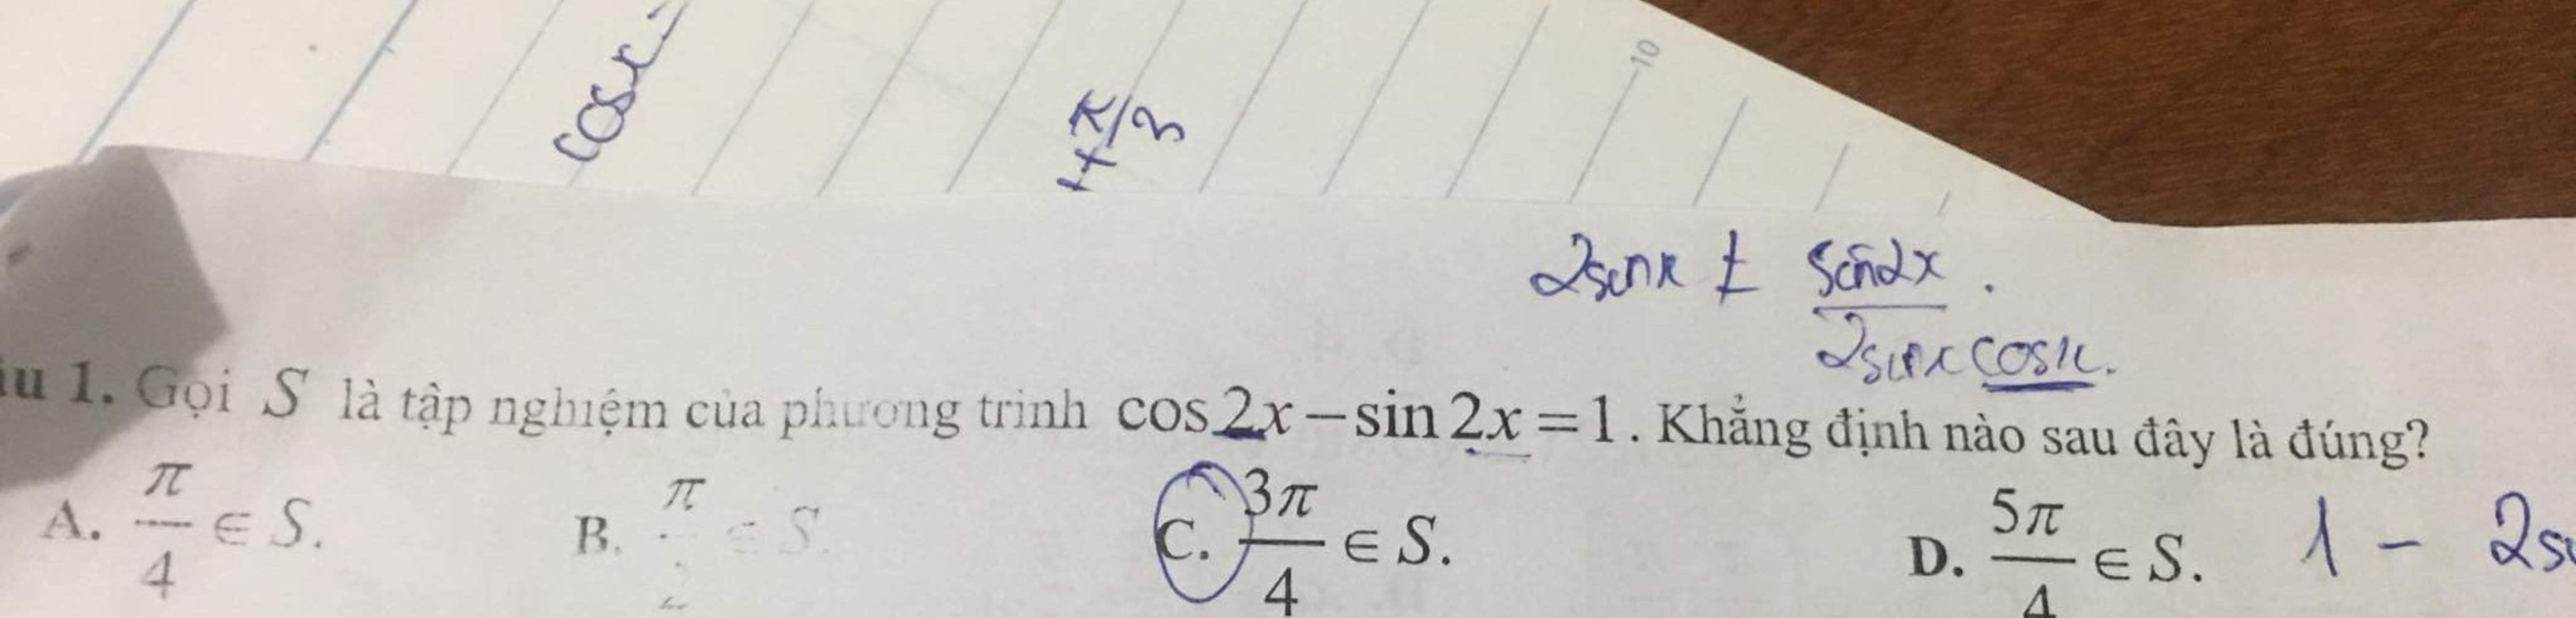 cosx
+π/3
10
2sinx ± sin2x .
2sinx cosx.
iu 1. Gọi S là tập nghiệm của phương trình cos 2x – sin 2x = 1. Khẳng định nào sau đây là đúng?
A. π/4 ∈ S. B. π/2 ∈ S. C. 3π/4 ∈ S. D. 5π/4 ∈ S. 1 – 2s